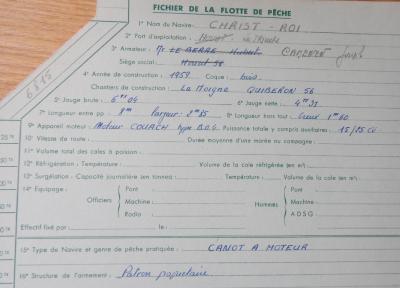 FICHIER DE LA FLOTTE DE PÊCHE
1° Nom du Navire: CHRIST-ROI
2° Port d'exploitation: Houat
3° Armateur: Mr LE BERRE Hubert
Siège social: Houat 56
4° Année de construction: 1959 Coque: bois
Chantiers de construction: Le Moigne QUIBERON 56
5° Jauge brute: 6tx04 6° Jauge nette: 4tx31
7° Longueur entre pp: 8m Largeur: 2m85 8° Longueur hors tout: Creux 1m60
9° Appareil moteur: Moteur COUACH type B.D.G. Puissance totale y compris auxiliaires: 15/25 CV
10° Vitesse de route: Durée moyenne d'une marée ou campagne:
11° Volume total des cales à poisson:
12° Réfrigération: Température: Volume de la cale réfrigérée (en m³):
13° Surgélation: Capacité journalière (en tonnes): Température: Volume de la cale (en m³):
14° Equipage: Officiers Pont Hommes Pont
Machine: Machine:
Radio ADSG
Effectif fixé par: le:
15° Type de Navire et genre de pêche pratiquée: CANOT A MOTEUR
16° Structure de l'armement: Patron propriétaire